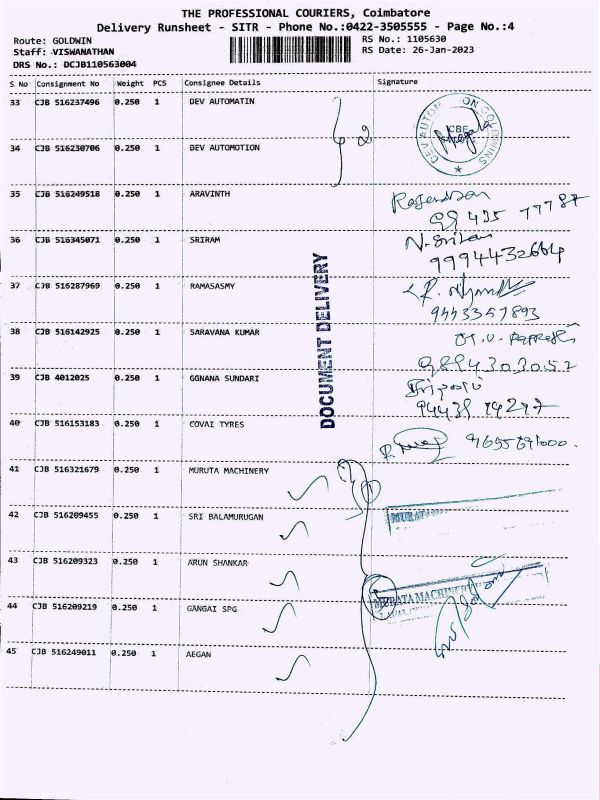 THE PROFESSIONAL COURIERS, Coimbatore
Delivery Runsheet - SITR - Phone No.:0422-3505555 - Page No.:4
Route: GOLDWIN RS No.: 1105630
Staff: VISWANATHAN RS Date: 26-Jan-2023
DRS No.: DCJB110563004
S No Consignment No Weight PCS Consignee Details Signature
33 CJB 516237496 0.250 1 DEV AUTOMATIN
34 CJB 516230706 0.250 1 DEV AUTOMOTION
35 CJB 516249518 0.250 1 ARAVINTH
Rajendran
36 CJB 516345071 0.250 1 SRIRAM
N. Sriram
9994432664
37 CJB 516287969 0.250 1 RAMASASMY
9443357893
38 CJB 516142925 0.250 1 SARAVANA KUMAR
9894303052
39 CJB 4012025 0.250 1 GGNANA SUNDARI
40 CJB 516153183 0.250 1 COVAI TYRES
41 CJB 516321679 0.250 1 MURUTA MACHINERY
42 CJB 516209455 0.250 1 SRI BALAMURUGAN
43 CJB 516209323 0.250 1 ARUN SHANKAR
44 CJB 516209219 0.250 1 GANGAI SPG
MURATA MACHINERY
45 CJB 516249011 0.250 1 AEGAN
DOCUMENT DELIVERY